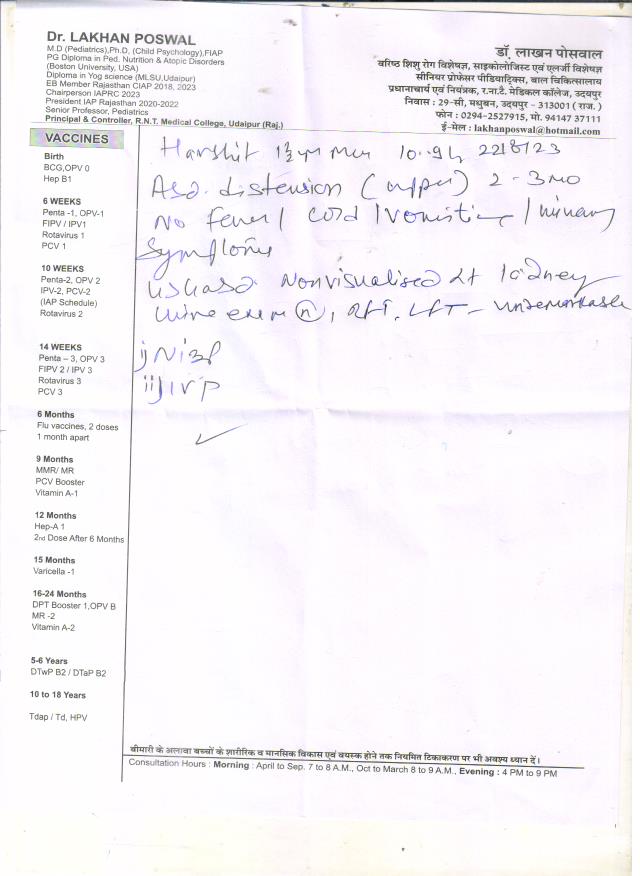 Dr. LAKHAN POSWAL
M.D (Pediatrics),Ph.D, (Child Psychology),FIAP
PG Diploma in Ped. Nutrition & Atopic Disorders
(Boston University, USA)
Diploma in Yog science (MLSU,Udaipur)
EB Member Rajasthan CIAP 2018, 2023
Chairperson IAPRC 2023
President IAP Rajasthan 2020-2022
Senior Professor, Pediatrics
Principal & Controller, R.N.T. Medical College, Udaipur (Raj.)
डॉ. लाखन पोसवाल
वरिष्ठ शिशु रोग विशेषज्ञ, साइकोलोजिस्ट एवं एलर्जी विशेषज्ञ
सीनियर प्रोफेसर पीडियाट्रिक्स, बाल चिकित्सालाय
प्रधानाचार्य एवं नियंत्रक, र.ना.टै. मेडिकल कॉलेज, उदयपुर
निवास : 29-सी, मधुबन, उदयपुर - 313001 ( राज. )
फोन : 0294-2527915, मो. 94147 37111
ई-मेल : lakhanposwal@hotmail.com
VACCINES
Birth
BCG,OPV 0
Hep B1
6 WEEKS
Penta -1, OPV-1
FIPV / IPV1
Rotavirus 1
PCV 1
10 WEEKS
Penta-2, OPV 2
IPV-2, PCV-2
(IAP Schedule)
Rotavirus 2
14 WEEKS
Penta – 3, OPV 3
FIPV 2 / IPV 3
Rotavirus 3
PCV 3
6 Months
Flu vaccines, 2 doses
1 month apart
9 Months
MMR/ MR
PCV Booster
Vitamin A-1
12 Months
Hep-A 1
2nd Dose After 6 Months
15 Months
Varicella -1
16-24 Months
DPT Booster 1,OPV B
MR -2
Vitamin A-2
5-6 Years
DTwP B2 / DTaP B2
10 to 18 Years
Tdap / Td, HPV
Harshit 22/8/23
Abd. distension (upper) 2-3mo
No fever / cold / vomiting / urinary
Symptoms
Nonvisualised Lt kidney
urine exam (n), RFT, LFT - unremarkable
ii) IVP
बीमारी के अलावा बच्चों के शारीरिक व मानसिक विकास एवं वयस्क होने तक नियमित टिकाकरण पर भी अवश्य ध्यान दें।
Consultation Hours : Morning : April to Sep. 7 to 8 A.M., Oct to March 8 to 9 A.M., Evening : 4 PM to 9 PM